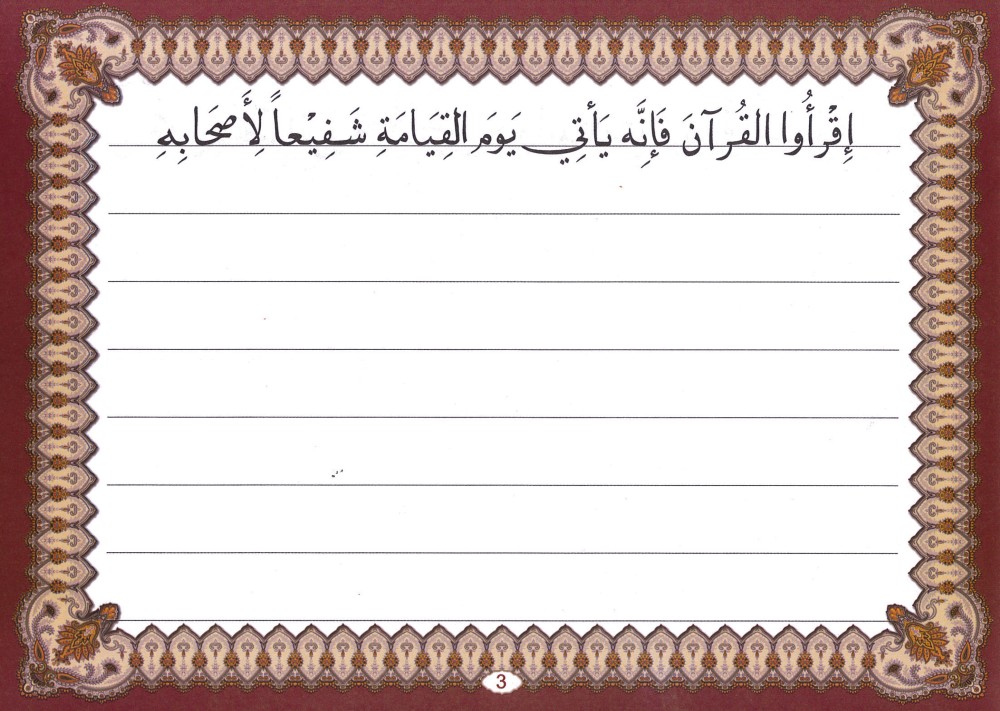 إِقْرَأُوا القُرآنَ فَإِنَّه يَأتِي يَومَ القِيَامَةِ شَفِيْعاً لِأَصحَابِهِ
3